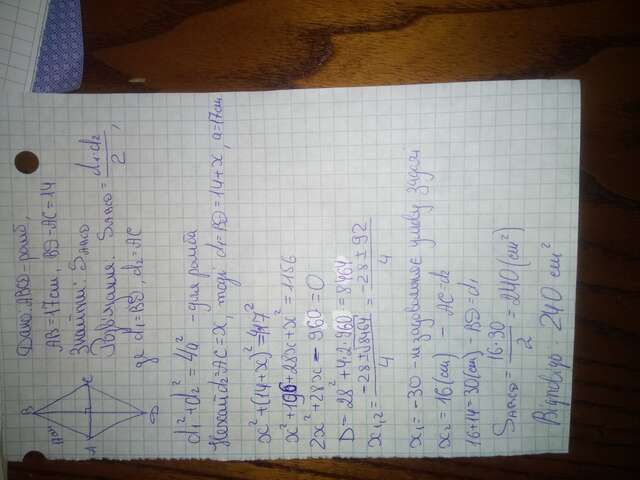 B
17 см
A
C
D
Дано: ABCD - ромб,
AB = 17 см, BD - AC = 14
Знайти: S ABCD
Розв'язання. S ABCD = d₁·d₂ / 2,
де d₁ = BD, d₂ = AC
d₁² + d₂² = 4a² - для ромба
Нехай d₂ = AC = x, тоді d₁ = BD = 14 + x, a = 17 см
x² + (14 + x)² = 4·17²
x² + 196 + 28x + x² = 1156
2x² + 28x - 960 = 0
D = 28² + 4·2·960 = 8464
x₁,₂ = -28 ± √8464 / 4 = -28 ± 92 / 4
x₁ = -30 - не задовольняє умову задачі
x₂ = 16 (см) - AC = d₂
16 + 14 = 30 (см) - BD = d₁
S ABCD = 16·30 / 2 = 240 (см²)
Відповідь: 240 см²